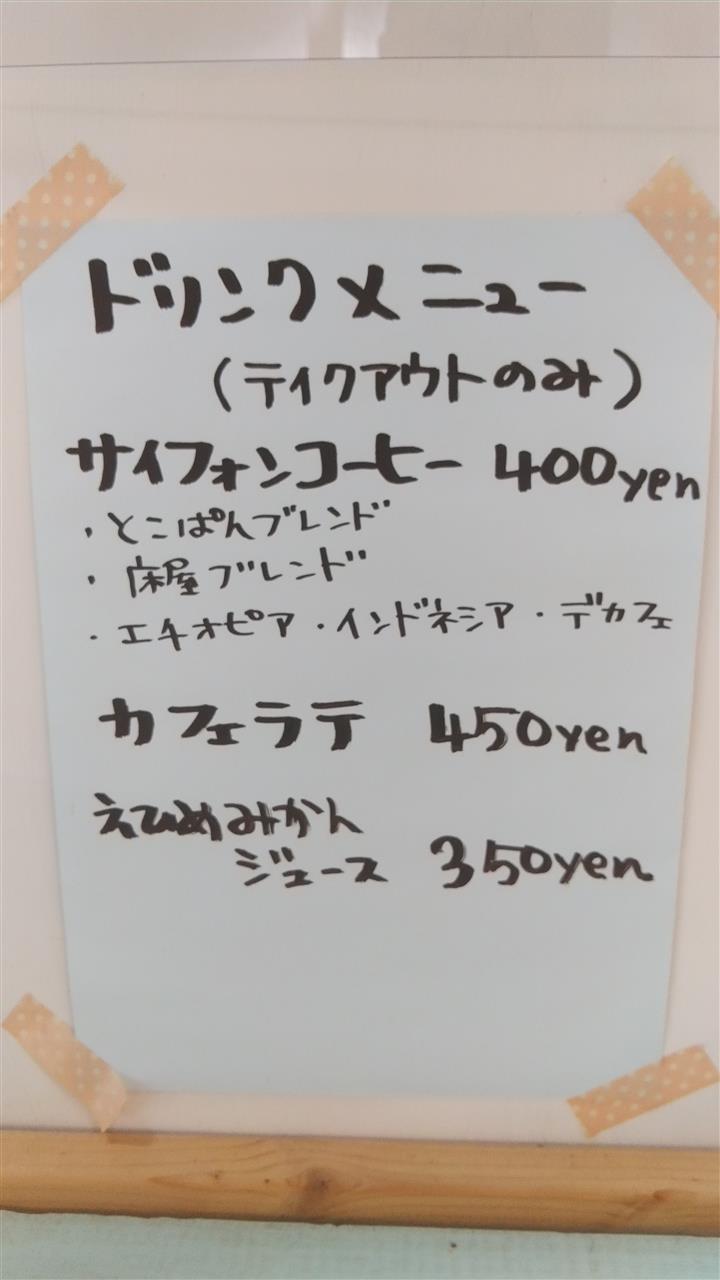 ドリンクメニュー
(テイクアウトのみ)
サイフォンコーヒー 400yen
・とこぱんブレンド
・床屋ブレンド
・エチオピア・インドネシア・デカフェ
カフェラテ 450yen
えひめみかん
ジュース 350yen